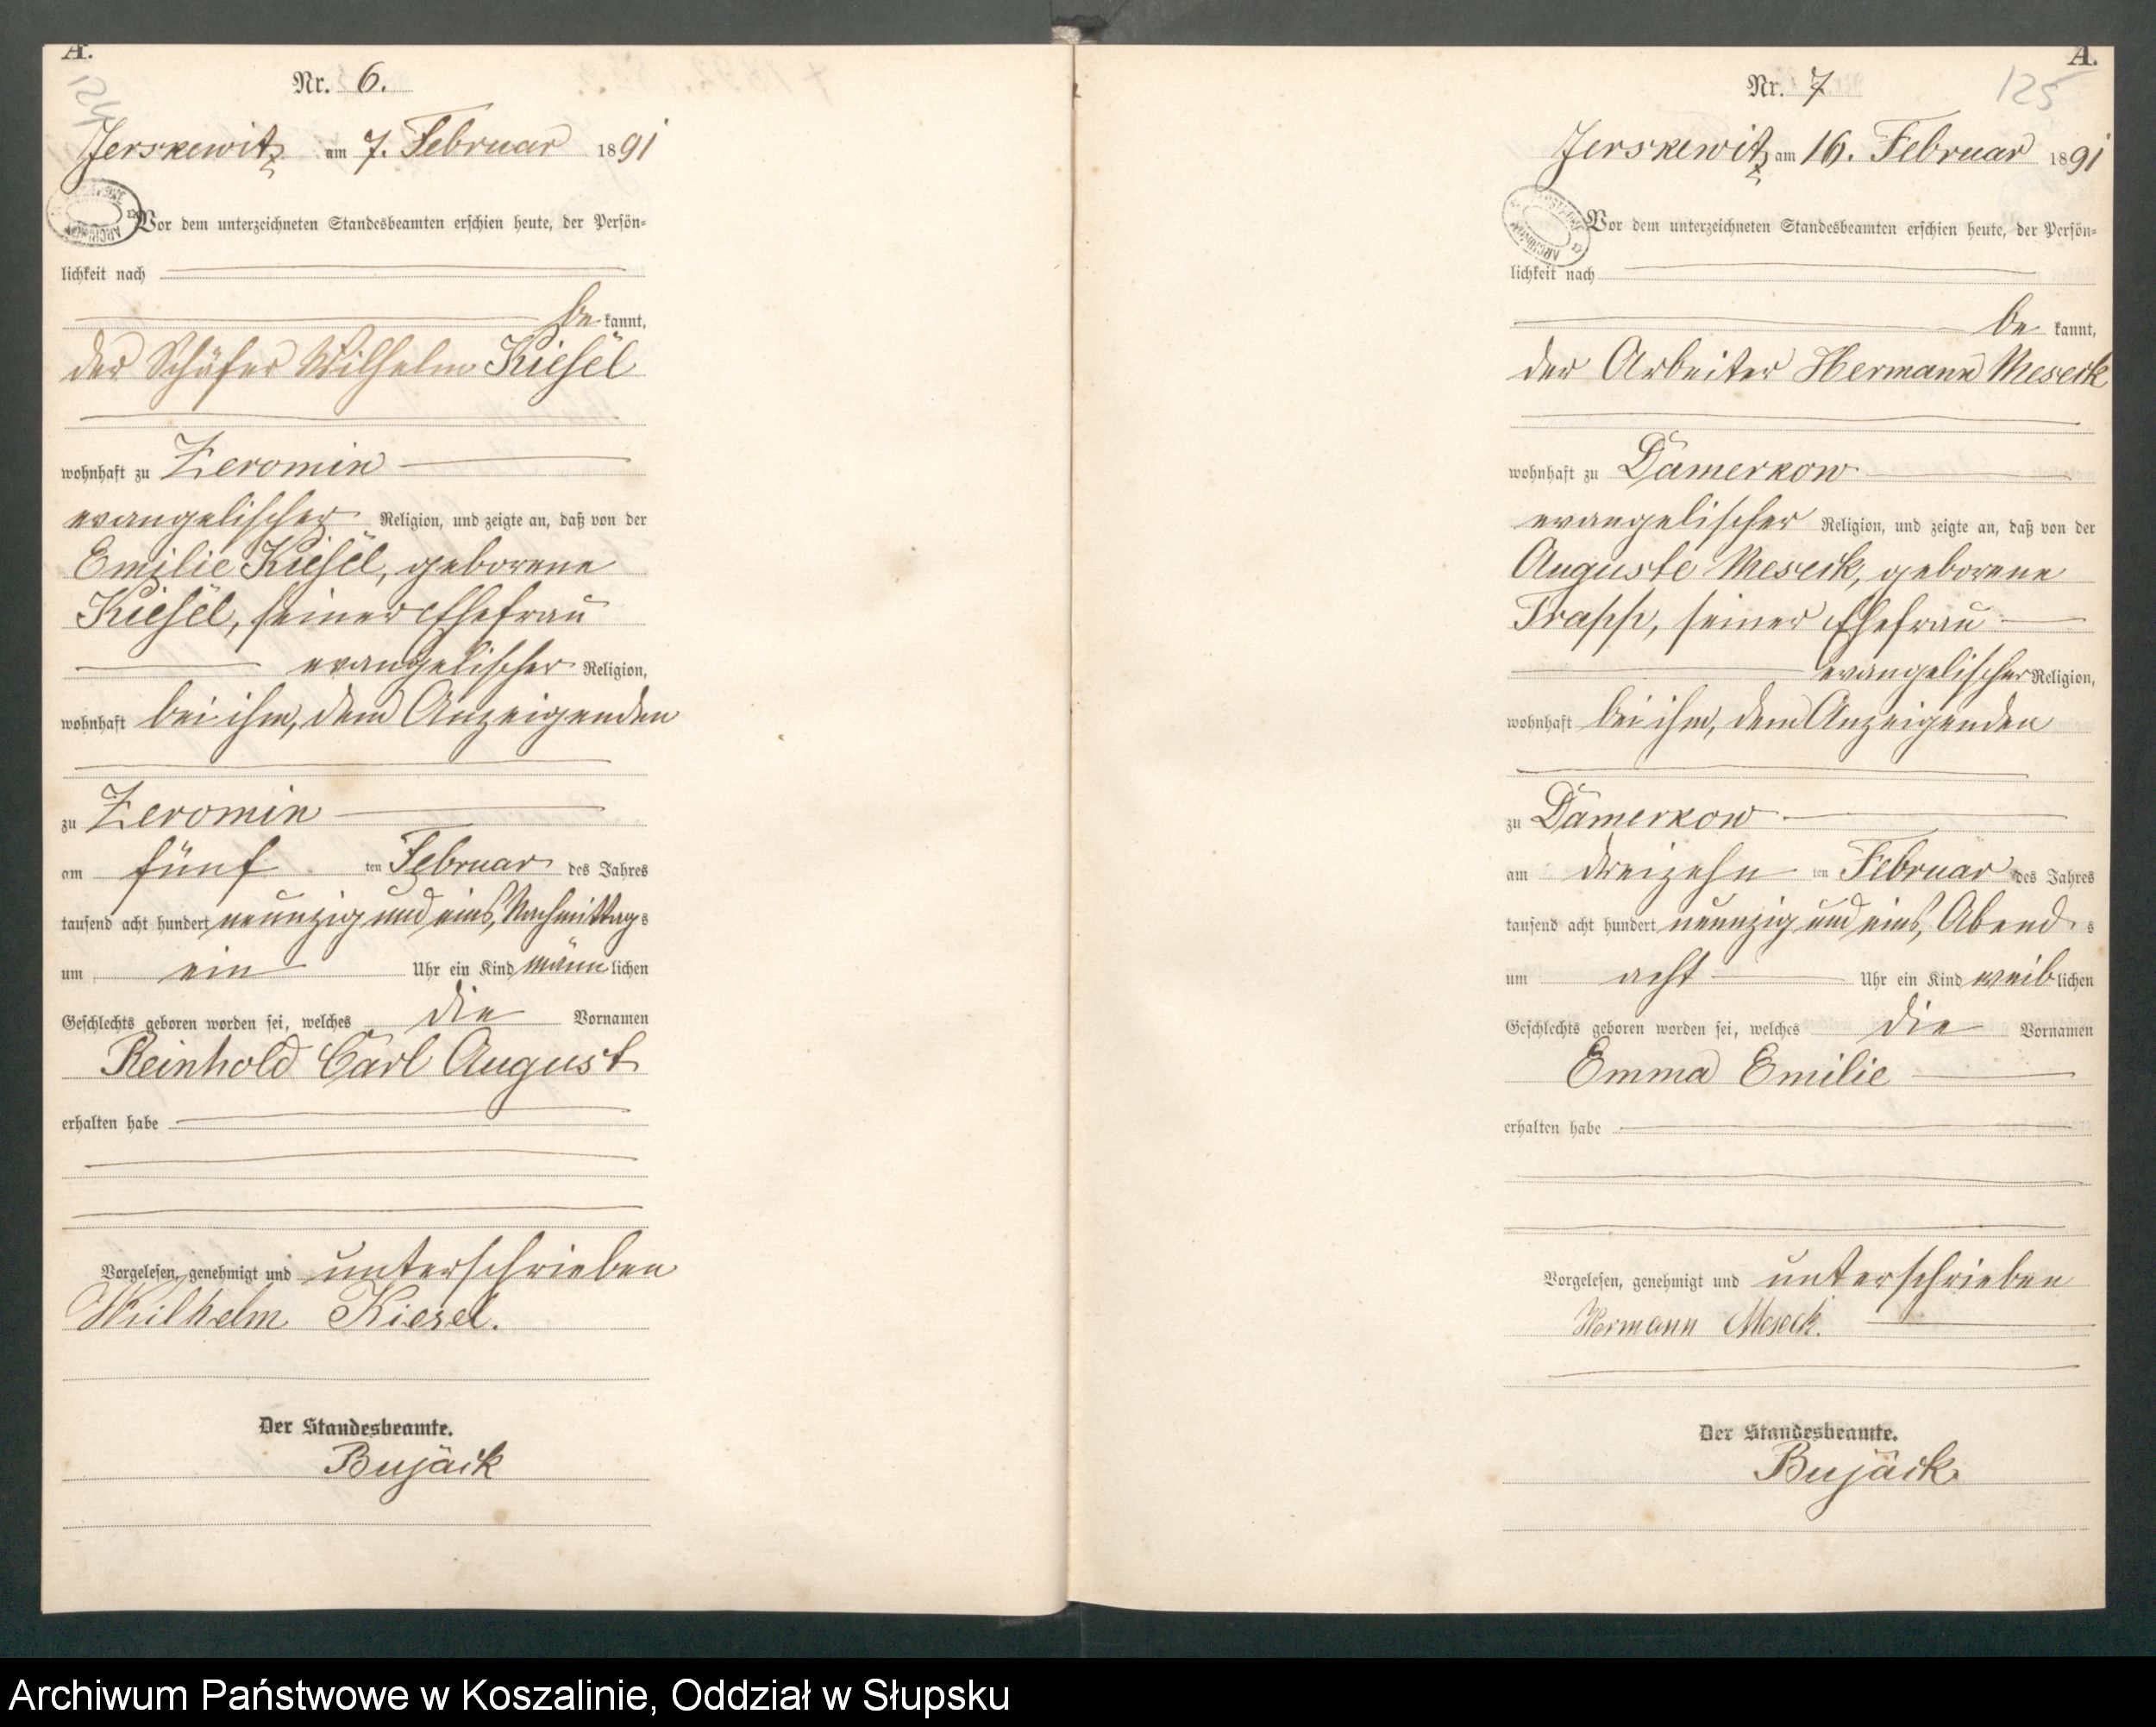 A.
124
Nr. 6.
Jerskewitz am 7. Februar 1891
Vor dem unterzeichneten Standesbeamten erschien heute, der Persön-
lichkeit nach
be kannt,
der Schäfer Wilhelm Kiesel
wohnhaft zu Zeromin
evangelischer Religion, und zeigte an, daß von der
Emilie Kiesel, geborene
Kiesel, seiner Ehefrau
evangelischer Religion,
wohnhaft bei ihm, dem Anzeigenden
zu Zeromin
am fünf ten Februar des Jahres
tausend acht hundert neunzig und eins, Nachmittag s
um ein Uhr ein Kind männ lichen
Geschlechts geboren worden sei, welches die Vornamen
Reinhold Carl August
erhalten habe
Vorgelesen, genehmigt und unterschrieben
Wilhelm Kiesel.
Der Standesbeamte.
Bujäck
A.
125
Nr. 7
Jerskewitz am 16. Februar 1891
Vor dem unterzeichneten Standesbeamten erschien heute, der Persön-
lichkeit nach
be kannt,
der Arbeiter Hermann Meseck
wohnhaft zu Damerkow
evangelischer Religion, und zeigte an, daß von der
Auguste Meseck, geborene
Trapp, seiner Ehefrau
evangelischer Religion,
wohnhaft bei ihm, dem Anzeigenden
zu Damerkow
am dreizehn ten Februar des Jahres
tausend acht hundert neunzig und eins, Abend s
um acht Uhr ein Kind weib lichen
Geschlechts geboren worden sei, welches die Vornamen
Emma Emilie
erhalten habe
Vorgelesen, genehmigt und unterschrieben
Hermann Meseck.
Der Standesbeamte.
Bujäck
Archiwum Państwowe w Koszalinie, Oddział w Słupsku